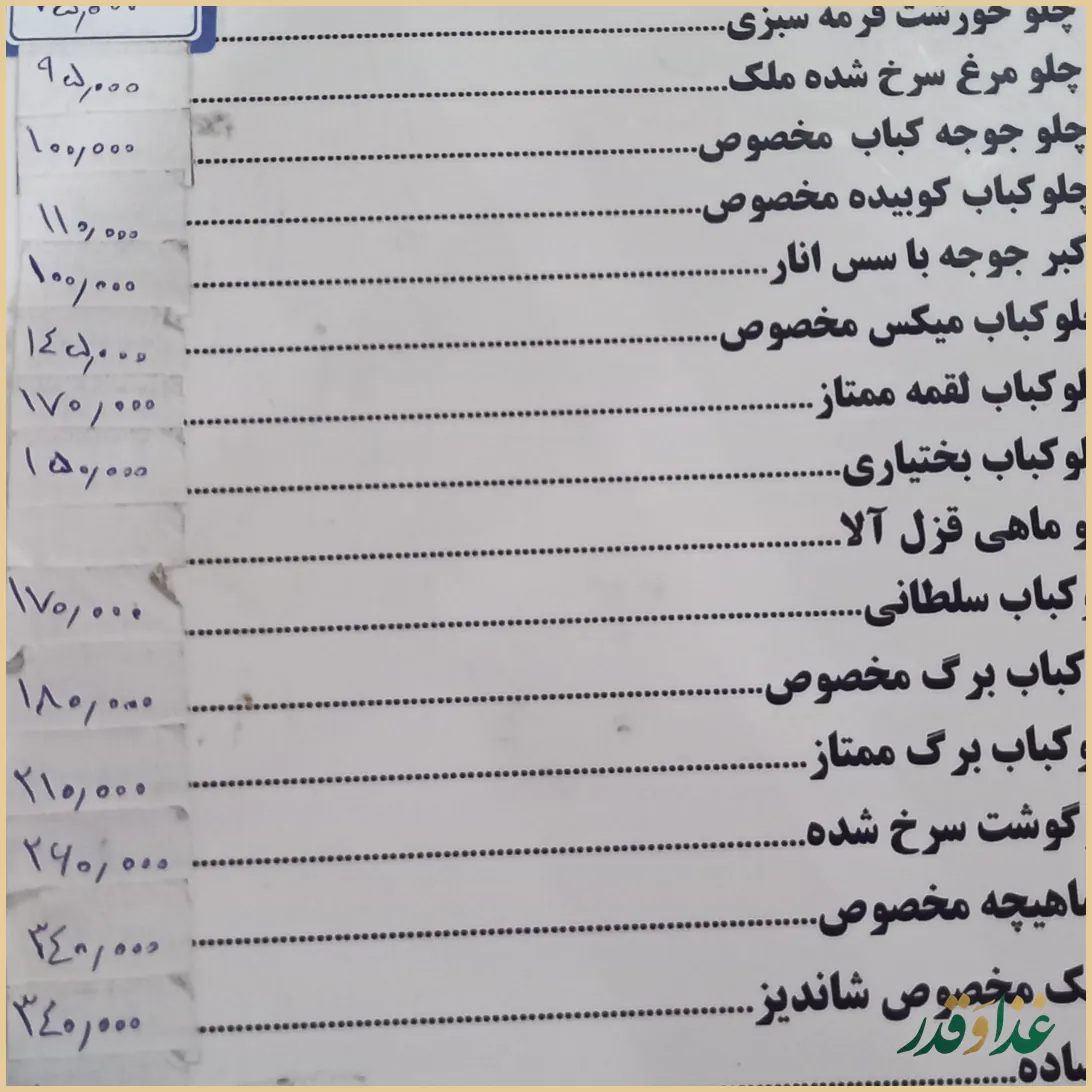 چلو خورشت قرمه سبزی
چلو مرغ سرخ شده ملک ۹۵,۰۰۰
چلو جوجه کباب مخصوص ۱۰۰,۰۰۰
چلو کباب کوبیده مخصوص ۱۱۰,۰۰۰
کبر جوجه با سس انار ۱۰۰,۰۰۰
لو کباب میکس مخصوص ۱۴۵,۰۰۰
لو کباب لقمه ممتاز ۱۷۰,۰۰۰
لو کباب بختیاری ۱۵۰,۰۰۰
و ماهی قزل آلا
و کباب سلطانی ۱۷۰,۰۰۰
کباب برگ مخصوص ۱۸۰,۰۰۰
و کباب برگ ممتاز ۲۱۰,۰۰۰
گوشت سرخ شده ۲۶۰,۰۰۰
ماهیچه مخصوص ۳۴۰,۰۰۰
ک مخصوص شاندیز ۳۴۰,۰۰۰
غذا و قدر